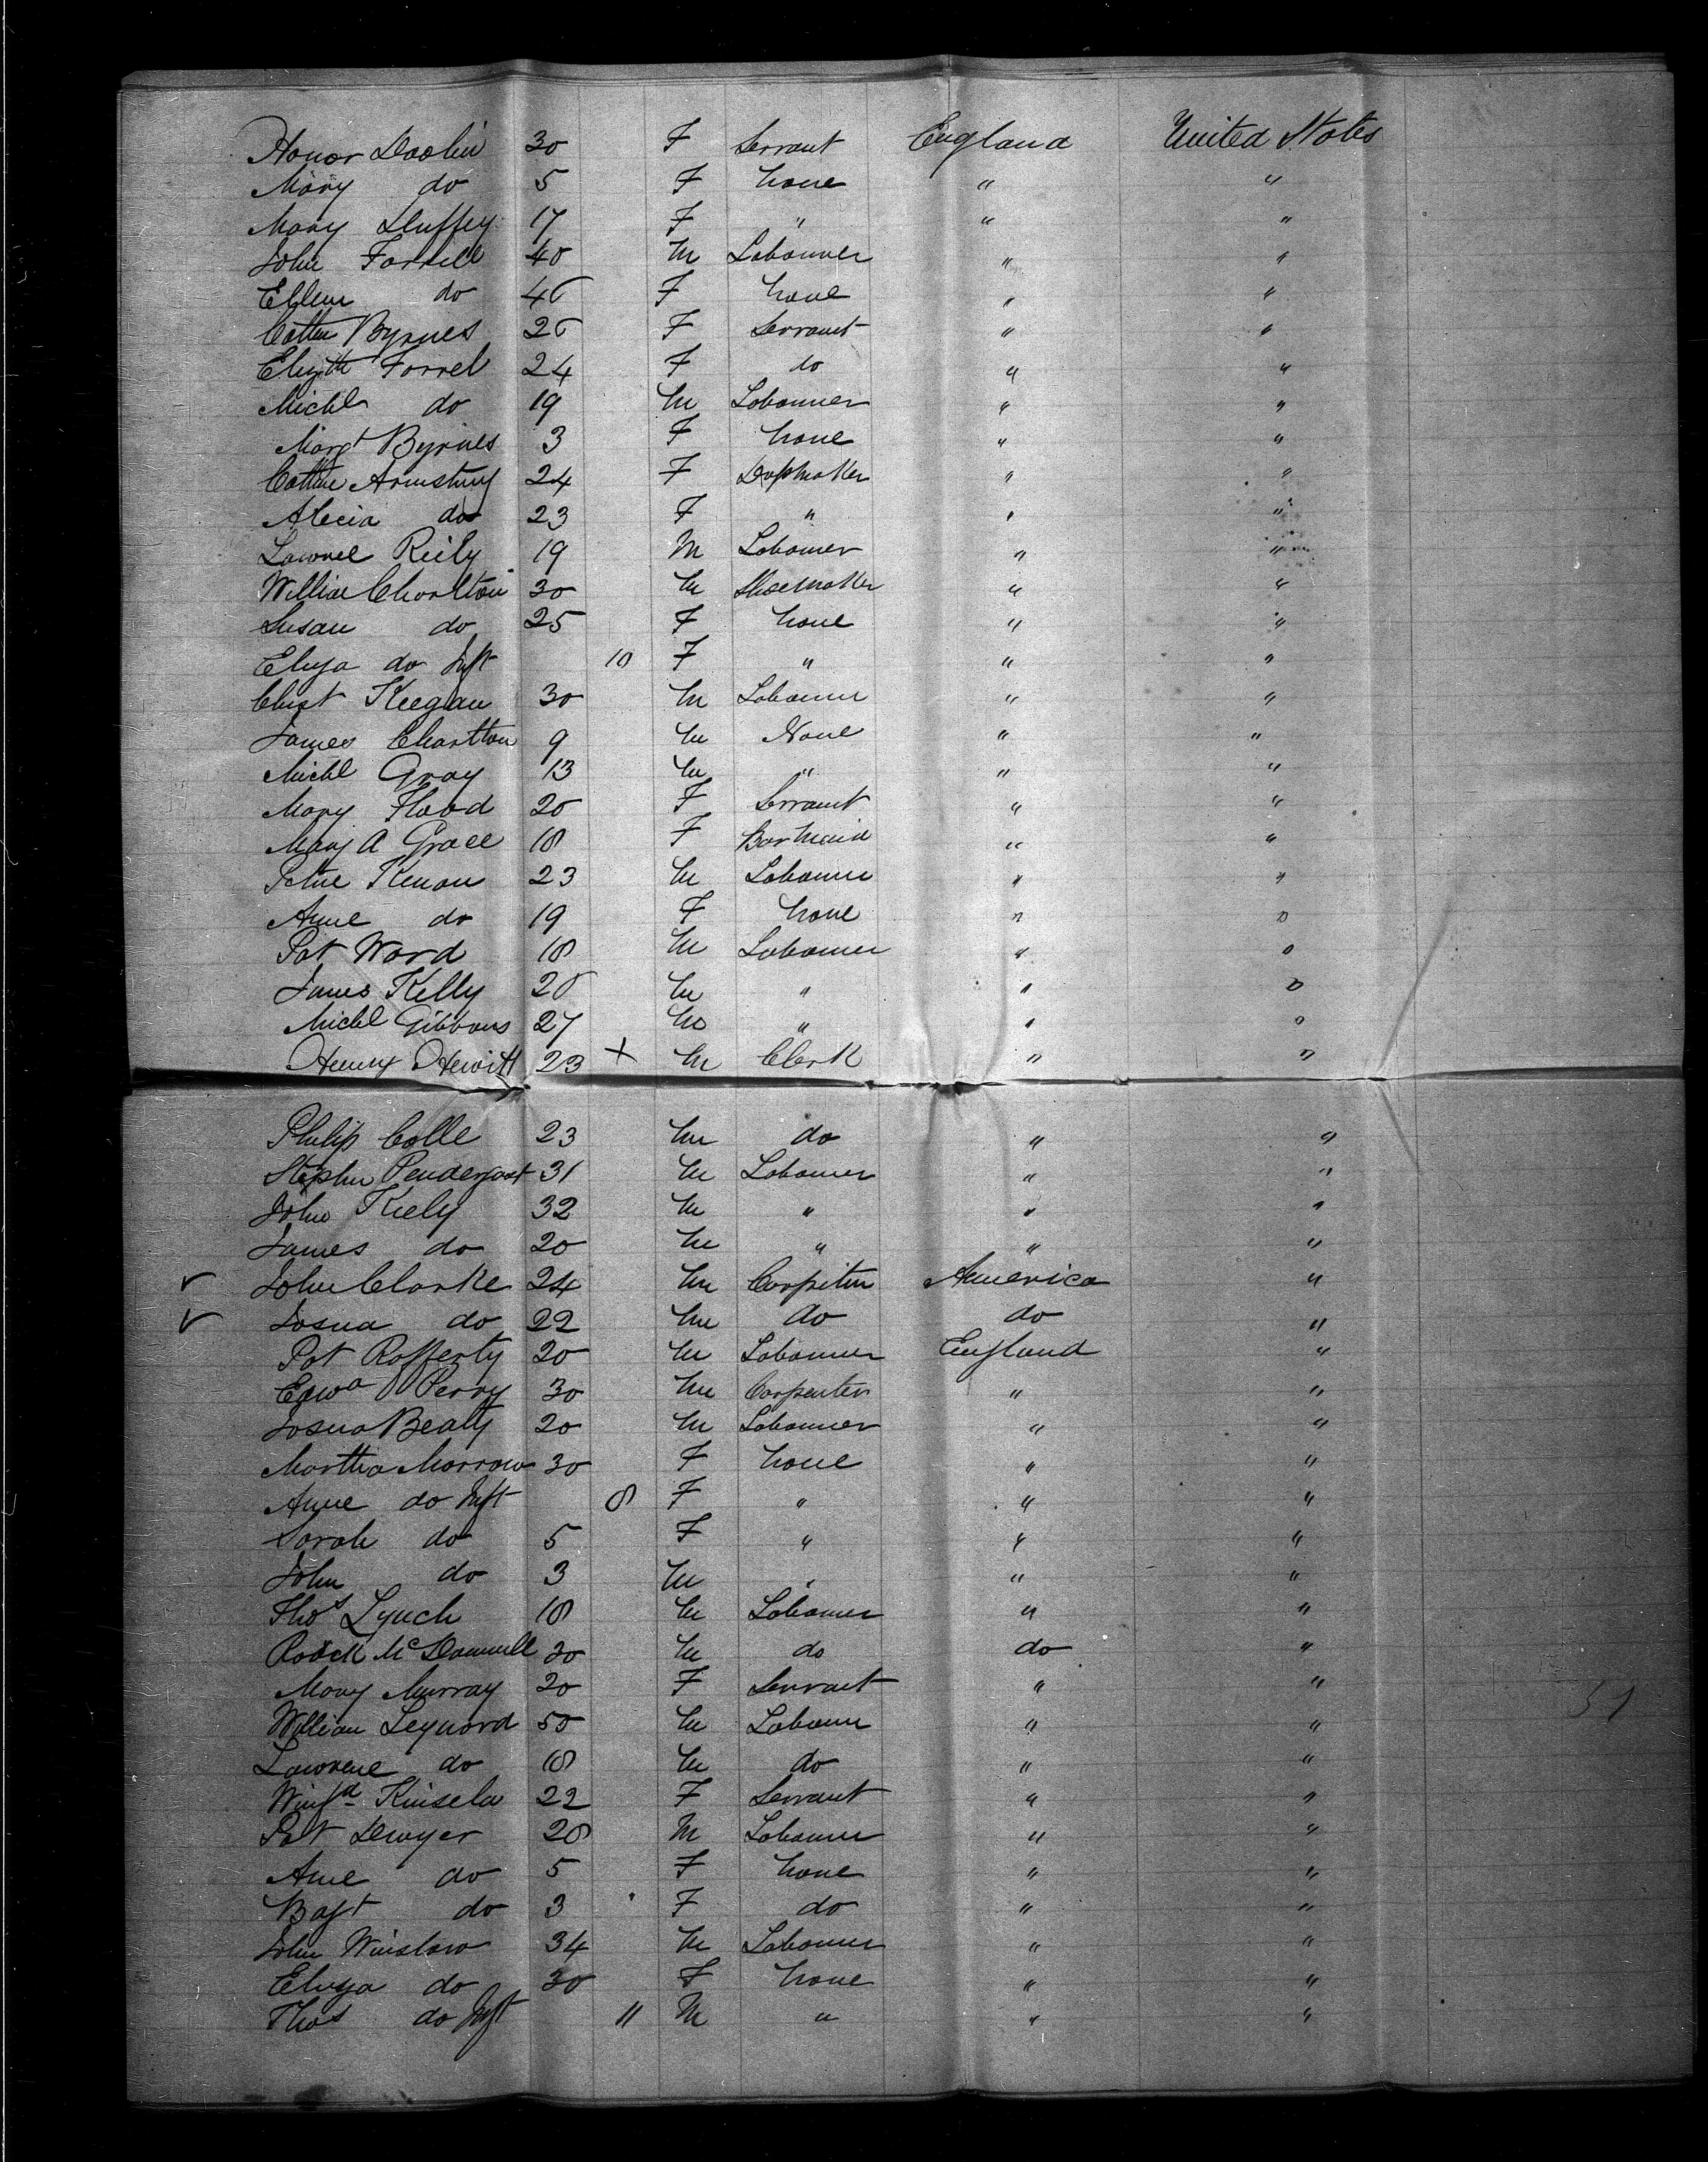 Honor Doolin 30 F Servant England United States
Mary do 5 F none " "
Mary Duffey 17 F " " "
John Farrell 40 M Labourer " "
Ellen do 40 F none " "
Cathe Byrnes 20 F Servant " "
Elizth Farrel 24 F do " "
Michl do 19 M Labourer " "
Margt Byrnes 3 F none " "
Cathe Armstrong 24 F " "
Alecia do 23 F " " "
Lawrence Reily 19 M Labourer " "
William Charlton 30 M Shoemaker " "
Susan do 25 F none " "
Eliza do Inft 10 F " " "
Christ Keegan 30 M Labourer " "
James Charlton 9 M None " "
Michl Gray 13 M " " "
Mary Flood 20 F Servant " "
Mary A Grace 18 F Barmaid " "
Kenan 23 M Labourer " "
Anne do 19 F none " "
Pat Ward 18 M Labourer " "
James Kelly 20 M " " "
Michl Gibbons 27 M " " "
Henry Hewitt 23 + M Clerk " "
Philip Colle 23 M do " "
Stephen Pendergast 31 M Labourer " "
John Kiely 32 M " " "
James do 20 M " " "
✓ John Clarke 24 M Carpiter America "
✓ Josua do 22 M do do "
Pat Rafferty 20 M Labourer England "
Edwd Perry 30 M Carpenter " "
Josua Beaty 20 M Labourer " "
Martha Morrow 30 F none " "
Anne do Inft 8 F " " "
Sarah do 5 F " " "
John do 3 M " " "
Thos Lynch 18 M Labourer " "
McDonnell 30 M do do "
Mary Murray 20 F Servant " "
William Leynord 50 M Labourer " "
Lawrence do 18 M do " "
Winfd Kinsela 22 F Servant " "
Pat Dwyer 28 M Labourer " "
Anne do 5 F none " "
do 3 F do " "
John Winslow 34 M Labourer " "
Eliza do 30 F none " "
Thos do Inft 11 M " " "